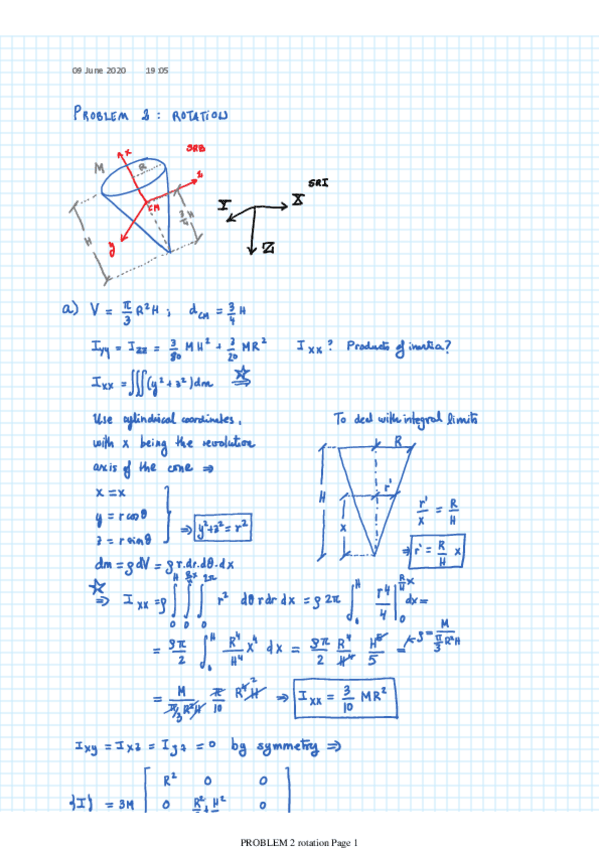 09 June 2020 19:05
PROBLEM 2: ROTATION
SRB
x
M
R
z
CM
H
3/4 H
y
SRI
I
X
Z
a) V = π/3 R²H ; d_CM = 3/4 H
I_yy = I_zz = 3/80 MH² + 3/20 MR² I_xx? Products of inertia?
I_xx = ∭(y²+z²)dm ☆⇒
Use cylindrical coordinates,
with x being the revolution
axis of the cone ⇒
x = x
y = r cosθ
z = r sinθ
⇒ y²+z² = r²
To deal with integral limits
R
H
r'
x
r'/x = R/H
⇒ r' = R/H x
dm = ρdV = ρ r.dr.dθ.dx
☆⇒ I_xx = ρ ∫₀^H ∫₀^{R/H x} ∫₀^{2π} r² dθ r dr dx = ρ 2π ∫₀^H r⁴/4 |₀^{R/H x} dx =
= ρπ/2 ∫₀^H R⁴/H⁴ x⁴ dx = ρπ/2 R⁴/H⁴ H⁵/5 = ρ = M/(π/3 R²H)
= M/(π/3 R²H) π/10 R⁴H ⇒ I_xx = 3/10 MR²
I_xy = I_xz = I_yz = 0 by symmetry ⇒
{I} = 3M [ R² 0 0
0 R² + H² 0
PROBLEM 2 rotation Page 1